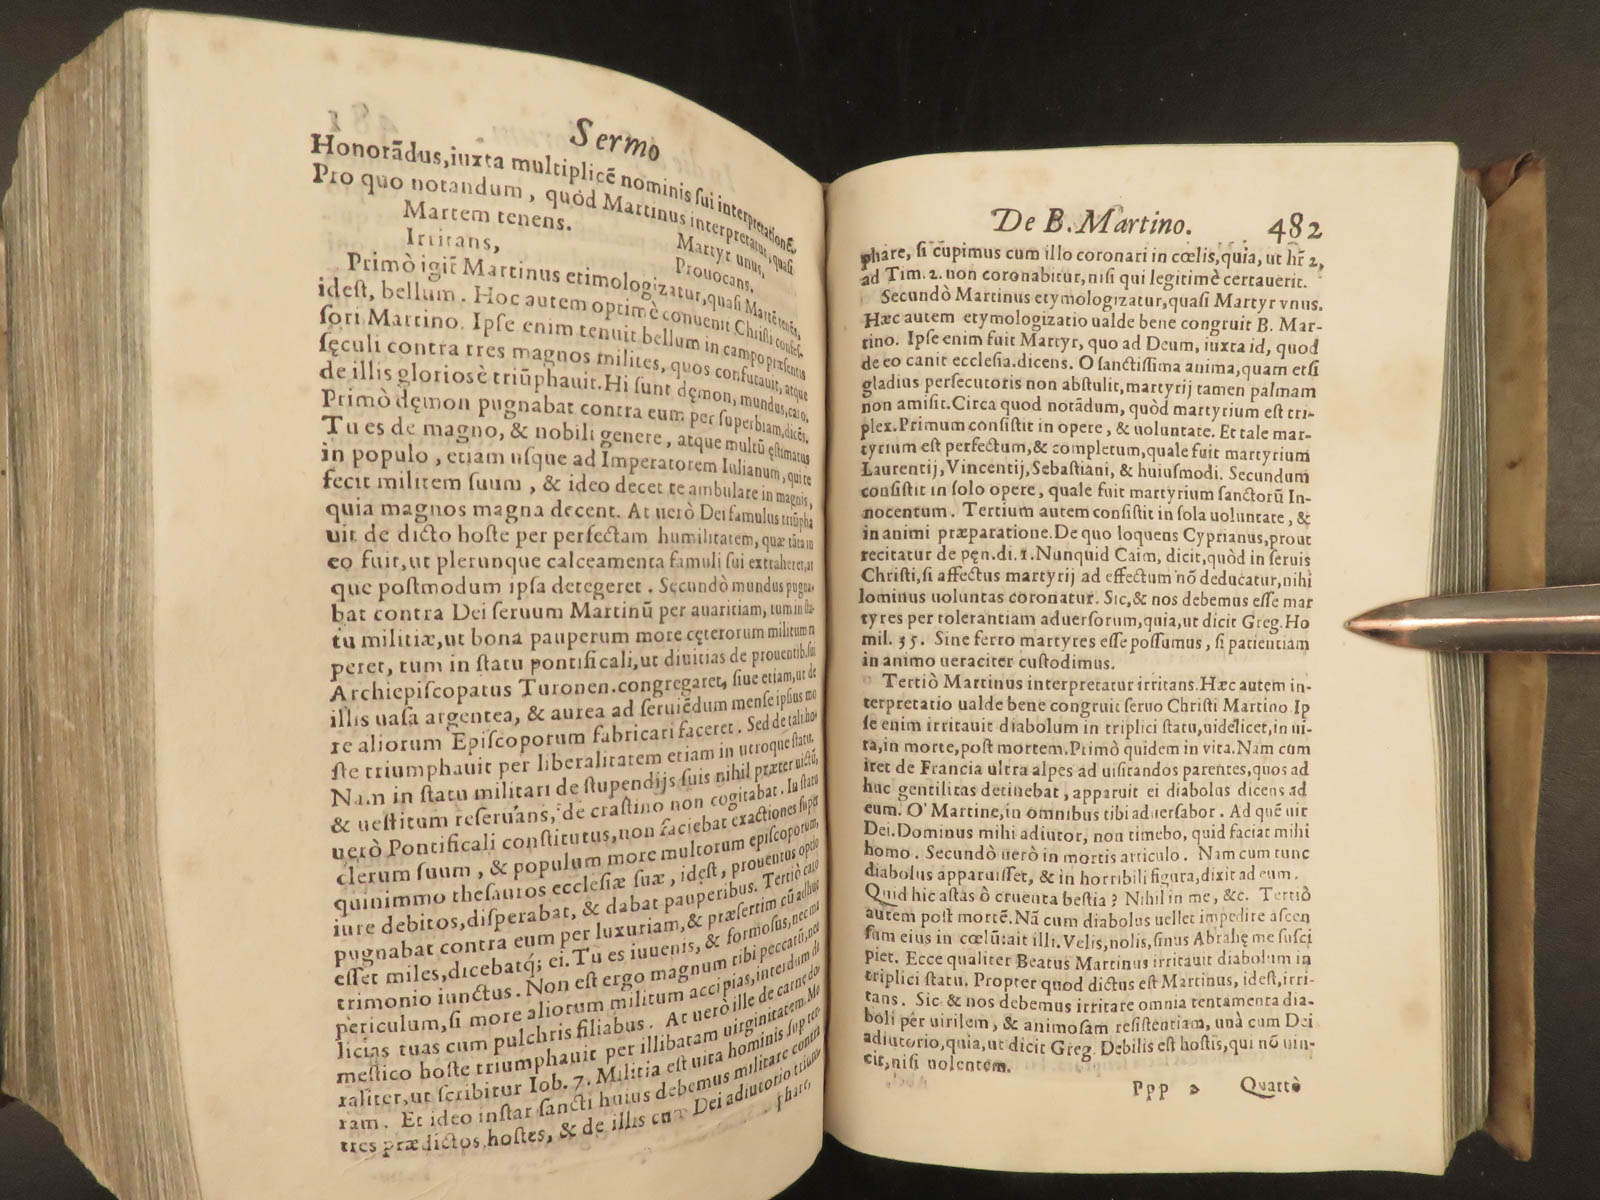 Sermo
Honorādus,iuxta multiplicē nominis ſui interpretationē.
Pro quo notandum, quòd Martinus interpretatur, quaſi
Martem tenens. Martyr unus,
Irritans, Prouocans.
Primò igit̄ Martinus etimologizatur,quaſi Martē tenēs,
ideſt, bellum. Hoc autem optimè conuenit Chriſti confeſ-
ſori Martino. Ipſe enim tenuit bellum in campo præſentis
ſęculi contra tres magnos milites, quos confutauit, atque
de illis glorioſè triūphauit. Hi ſunt dęmon, mundus,caro.
Primò dęmon pugnabat contra eum per ſuperbiam,dicēs.
Tu es de magno, & nobili genere, atque multū ęſtimatus
in populo, etiam uſque ad Imperatorem Iulianum, qui te
fecit militem ſuum, & ideo decet te ambulare in magnis,
quia magnos magna decent. At uerò Dei famulus triūpha
uit de dicto hoſte per perfectam humilitatem, quæ tāta in
eo fuit,ut plerunque calceamenta famuli ſui extraheret,at
que poſtmodum ipſa detegeret. Secundò mundus pugna-
bat contra Dei ſeruum Martinū per auaritiam, tum in ſta-
tu militiæ,ut bona pauperum more cęterorum militum ra
peret, tum in ſtatu pontificali,ut diuitias de prouentib.ſui
Archiepiſcopatus Turonen.congregaret, ſiue etiam,ut de
illis uaſa argentea, & aurea ad ſeruiēdum menſe ipſius mo
re aliorum Epiſcoporum fabricari faceret. Sed de tali ho-
ſte triumphauit per liberalitatem etiam in utroque ſtatu.
Nam in ſtatu militari de ſtupendijs ſuis nihil præter uictū,
& ueſtitum reſeruans, de craſtino non cogitabat. In ſtatu
uerò Pontificali conſtitutus,non faciebat exactiones ſuper
clerum ſuum, & populum more multorum epiſcoporum,
quinimmo theſauros eccleſiæ ſuæ, ideſt, prouentus optio
iure debitos,diſperabat, & dabat pauperibus. Tertiò caro
pugnabat contra eum per luxuriam,& præſertim cū adhuc
eſſet miles,dicebatq́; ei.Tu es iuuenis, & formoſus,nec ma
trimonio iunctus. Non eſt ergo magnum tibi peccatū,nec
periculum,ſi more aliorum militum accipias,interdum de
licias tuas cum pulchris filiabus. At uerò ille de carne do
meſtico hoſte triumphauit per illibatam uirginitatem. Mo
raliter,ut ſcribitur Iob. 7. Militia eſt uita hominis ſup ter-
ram. Et ideo inſtar ſancti huius debemus militare contra
tres prædictos hoſtes, & de illis cum Dei adiutorio trium-
phare,
De B. Martino. 482
phare, ſi cupimus cum illo coronari in cœlis,quia, ut hr̄ 2,
ad Tim. 2. non coronabitur,niſi qui legitimè certauerit.
Secundò Martinus etymologizatur,quaſi Martyr vnus.
Hæc autem etymologizatio ualde bene congruit B. Mar-
tino. Ipſe enim fuit Martyr, quo ad Deum, iuxta id, quod
de eo canit eccleſia.dicens. O ſanctiſſima anima,quam etſi
gladius perſecutoris non abſtulit,martyrij tamen palmam
non amiſit.Circa quod notādum, quòd martyrium eſt tri-
plex.Primum conſiſtit in opere, & uoluntate. Et tale mar-
tyrium eſt perfectum,& completum,quale fuit martyrium
Laurentij,Vincentij,Sebaſtiani, & huiuſmodi. Secundum
conſiſtit in ſolo opere, quale fuit martyrium ſanctorū In-
nocentum. Tertium autem conſiſtit in ſola uoluntate, &
in animi præparatione.De quo loquens Cyprianus,prout
recitatur de pęn.di.1.Nunquid Caim, dicit,quòd in ſeruis
Chriſti,ſi affectus martyrij ad effectum nō deducatur,nihi
lominus uoluntas coronatur. Sic,& nos debemus eſſe mar
tyres per tolerantiam aduerſorum,quia,ut dicit Greg.Ho
mil. 35. Sine ferro martyres eſſe poſſumus, ſi patientiam
in animo ueraciter cuſtodimus.
Tertiò Martinus interpretatur irritans.Hæc autem in-
terpretatio ualde bene congruit ſeruo Chriſti Martino Ip
ſe enim irritauit diabolum in triplici ſtatu,uidelicet,in ui-
ta,in morte,poſt mortem.Primò quidem in vita.Nam cum
iret de Francia ultra alpes ad uiſitandos parentes,quos ad
huc gentilitas detinebat, apparuit ei diabolus dicens ad
eum. O' Martine,in omnibus tibi aduerſabor. Ad quē uir
Dei.Dominus mihi adiutor, non timebo, quid faciat mihi
homo. Secundò uerò in mortis articulo. Nam cum tunc
diabolus apparuiſſet, & in horribili figura,dixit ad eum.
Quid hic aſtas ô cruenta beſtia? Nihil in me, &c. Tertiò
autem poſt mortē.Nā cum diabolus uellet impedire aſcen
ſum eius in cœlū:ait illi.Velis,nolis,ſinus Abrahę me ſuſci
piet. Ecce qualiter Beatus Martinus irritauit diabolum in
triplici ſtatu. Propter quod dictus eſt Martinus, ideſt,irri-
tans. Sic & nos debemus irritare omnia tentamenta dia-
boli per uirilem, & animoſam reſiſtentiam, unà cum Dei
adiutorio,quia,ut dicit Greg. Debilis eſt hoſtis,qui nō uin-
cit,niſi uolentem.
Ppp 2 Quartò